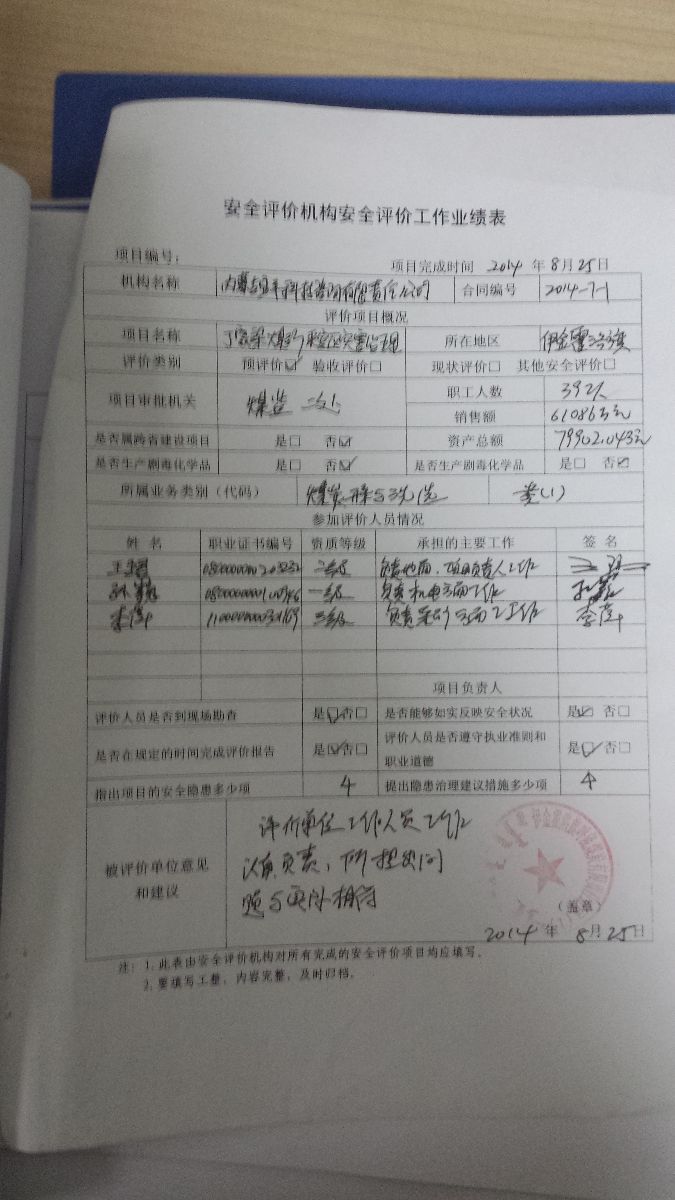 安全评价机构安全评价工作业绩表
项目编号： 项目完成时间 2014 年 8月 25日
机构名称 内蒙古 科技咨询有限责任公司 合同编号 2014-7-1
评价项目概况
项目名称 丁家梁煤矿采空区灾害治理 所在地区 伊金霍洛旗
评价类别 预评价☑ 验收评价□ 现状评价□ 其他安全评价□
项目审批机关 煤炭 职工人数 392人
销售额 61086万元
是否属跨省建设项目 是□ 否☑ 资产总额 79902.043元
是否生产剧毒化学品 是□ 否☑ 是否生产剧毒化学品 是□ 否☑
所属业务类别（代码） 煤炭 与洗选
参加评价人员情况
姓 名 职业证书编号 资质等级 承担的主要工作 签 名
二级 负责地面、项目负责人工作
孙 一级 负责机电方面工作 孙
李萍 三级 负责采矿方面工作 李萍
项目负责人
评价人员是否到现场勘查 是☑否□ 是否能够如实反映安全状况 是☑ 否□
是否在规定的时间完成评价报告 是☑否□ 评价人员是否遵守执业准则和
职业道德 是☑否□
指出项目的安全隐患多少项 4 提出隐患治理建议措施多少项 4
被评价单位意见
和建议
评价单位工作人员工作
认真负责，所提问
题与实际相符
（盖章）
2014 年 8月25日
注： 1. 此表由安全评价机构对所有完成的安全评价项目均应填写。
2. 要填写工整，内容完整，及时归档。